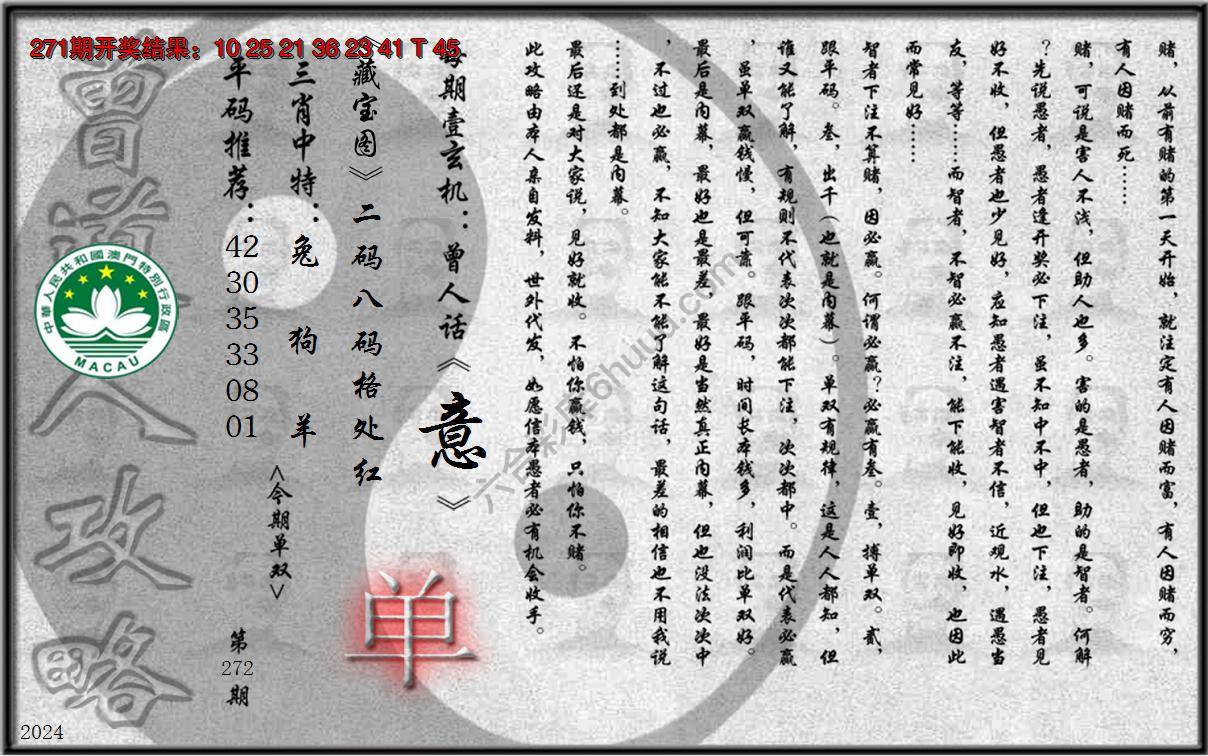 271期开奖结果：10 25 21 36 23 41 T 45
赌，从前有赌的第一天开始，就注定有人因赌而富，有人因赌而穷，
有人因赌而死……
赌，可说是害人不浅，但助人也多。害的是愚者，助的是智者。何解
？先说愚者，愚者逢开奖必下注，虽不知中不中，但也下注，愚者见
好不收，但愚者也少见好，应知愚者遇害智者不信，近观水，遇愚当
友，等等……而智者，不智必赢不注，能下能收，见好即收，也因此
而常见好……
智者下注不算赌，因必赢。何谓必赢？必赢有叁。壹，搏单双。贰，
跟平码。叁，出千（也就是内幕）。单双有规律，这是人人都知，但
谁又能了解，有规则不代表次次都能下注，次次都中。而是代表必赢
，虽单双赢钱慢，但可靠。跟平码，时间长本钱多，利润比单双好。
最后是内幕，最好也是最差，最好是当然真正内幕，但也没法次次中
，不过也必赢，不知大家能不能了解这句话，最差的相信也不用我说
……到处都是内幕。
最后还是对大家说，见好就收。不怕你赢钱，只怕你不赌。
此攻略由本人亲自发料，世外代发，如愿信本愚者必有机会收手。
每期壹玄机：曾人话《意》
《藏宝图》二码八码格处红
三肖中特：兔 狗 羊
平码推荐：
42
30
35
33
08
01
<今期单双>
单
第
272
期
曾道人攻略
中華人民共和國澳門特別行政區
MACAU
六合彩库6huuu.com
2024